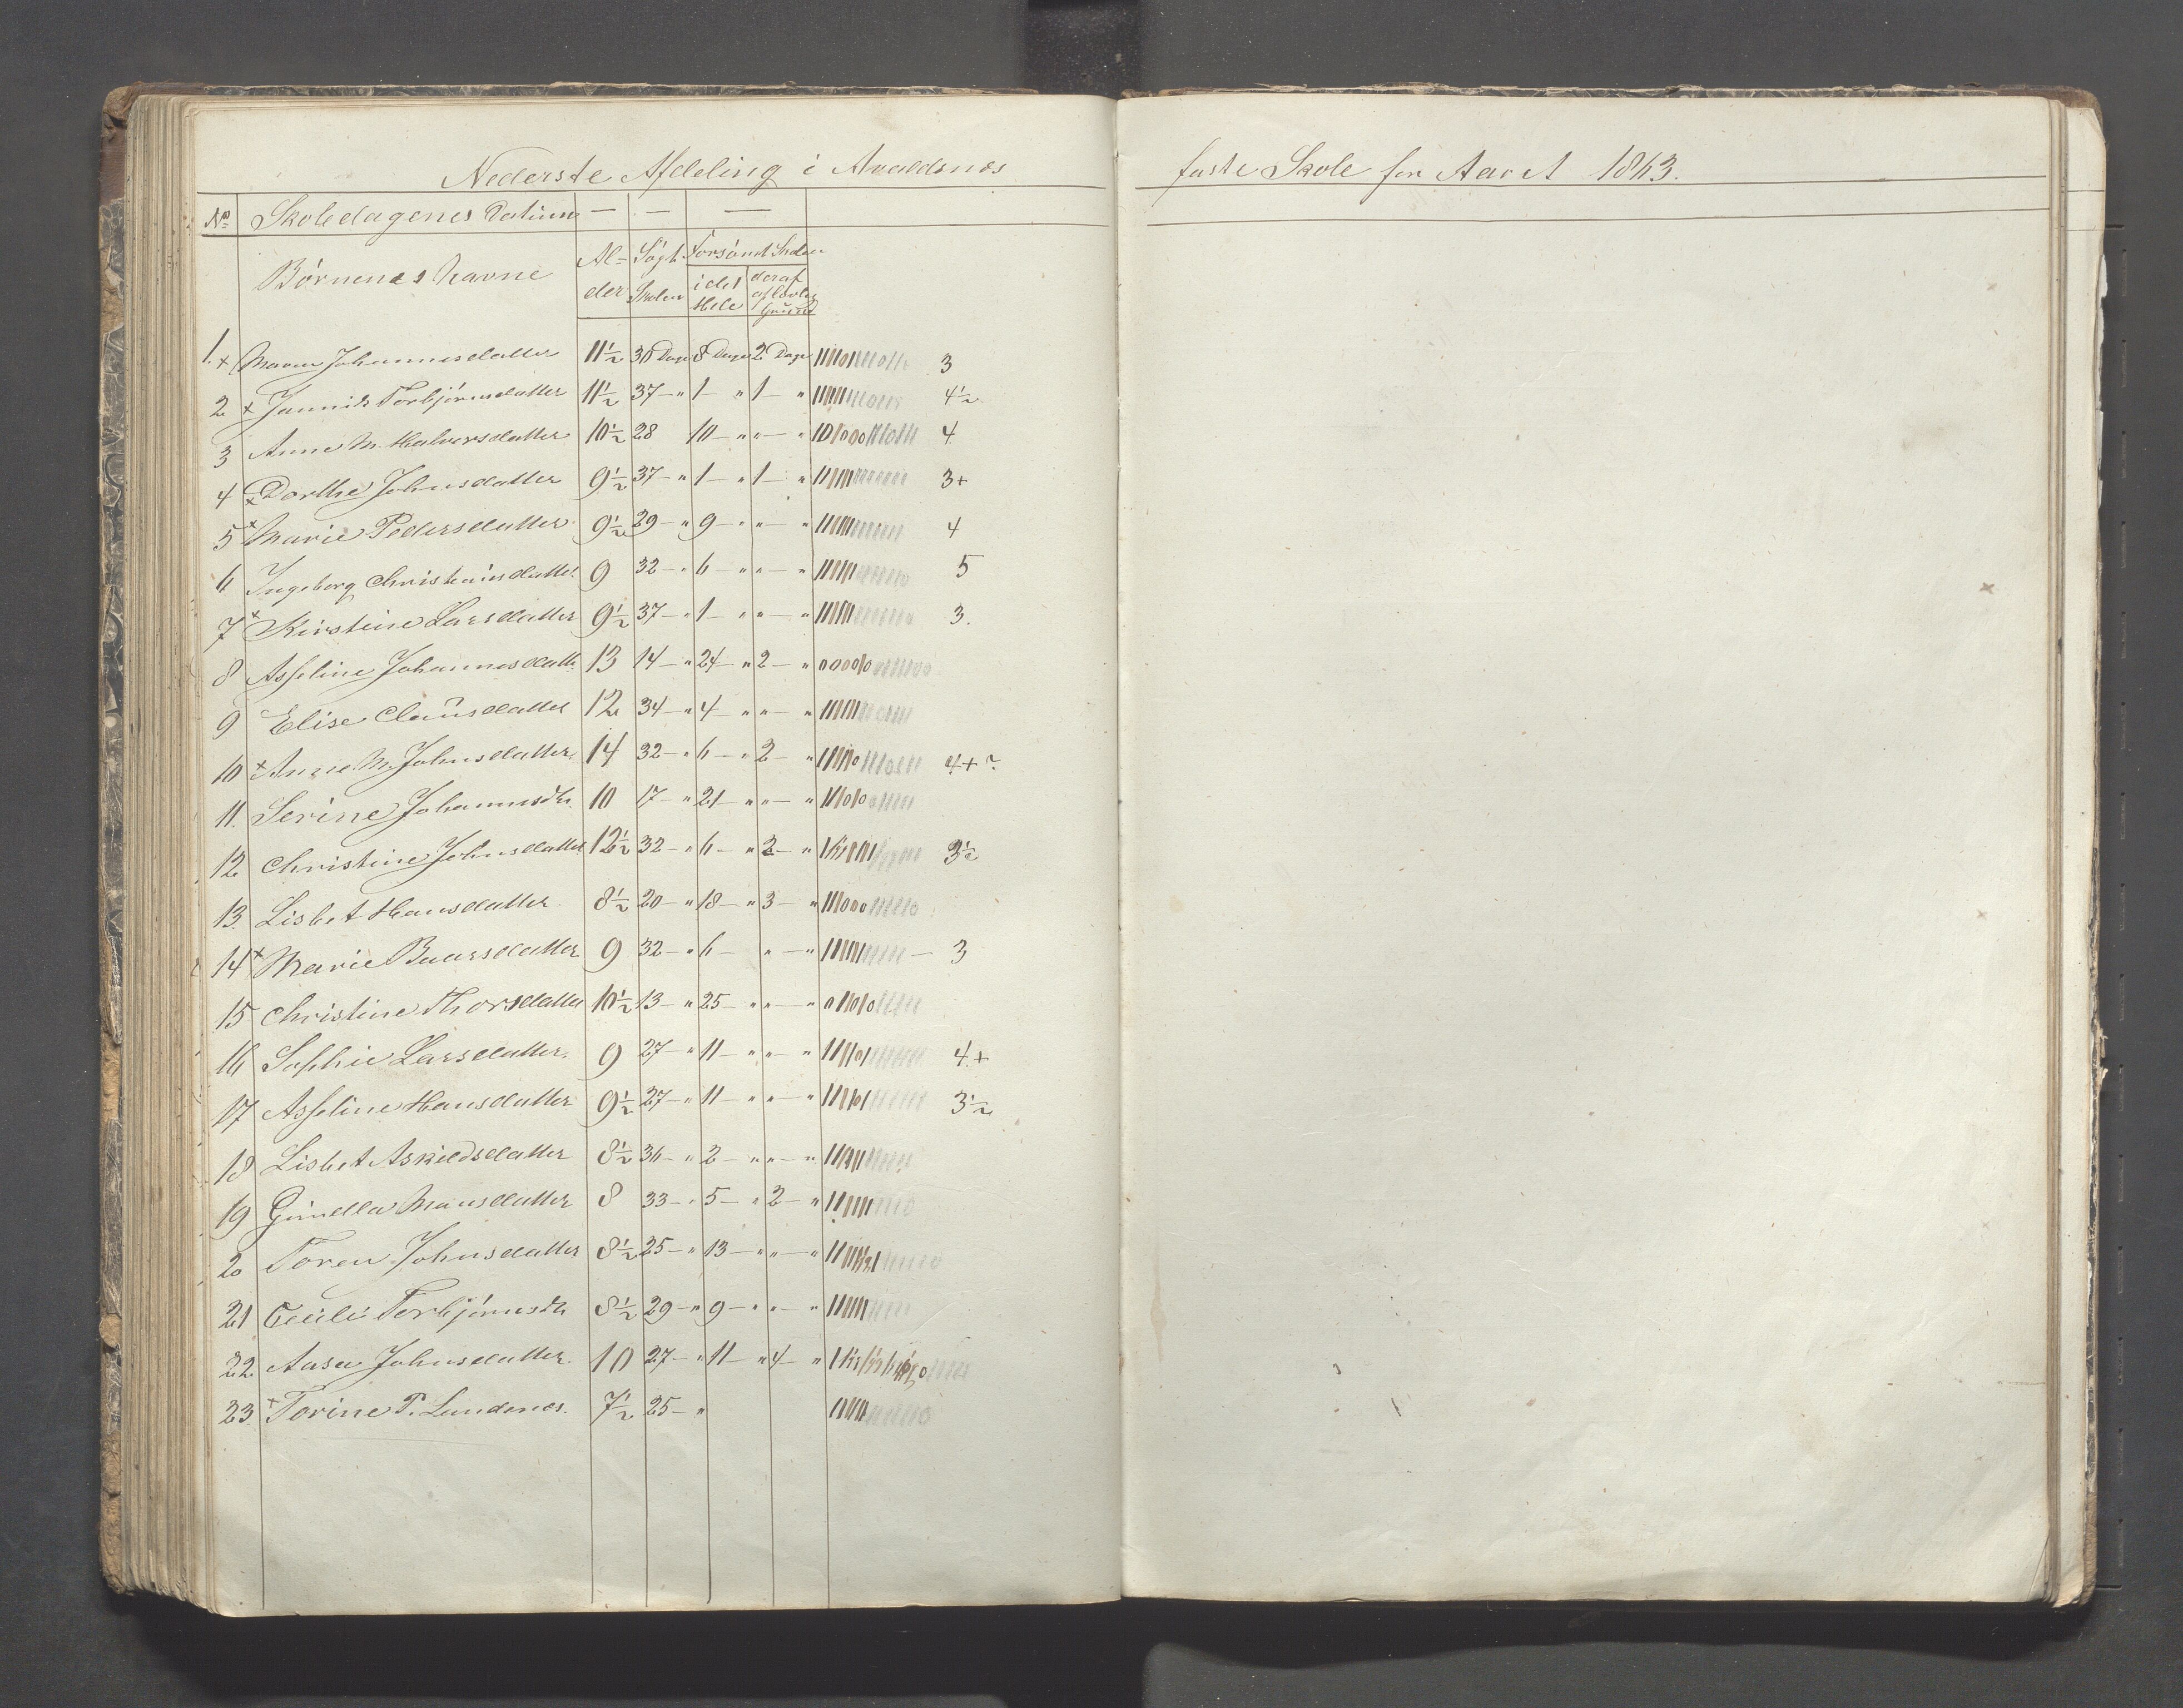 Nederste Afdeling i Avaldsnes faste Skole for Aaret 1863.
No Skoledagenes Datium — — —
Børnenes Navne Al= der Søgt Skolen Forsømt Skolen i det Hele deraf af lovlig Grund
1. + Maren Johannesdatter 11½ 30 Dage 8 Dage 2 Dage 3
2 + Jannik Torbjörnsdatter 11½ 37 — " 1 — " 1 — " 4½
3 Anne M. Halversdatter 10½ 28 10 — " " — " 4
4 + Dorthe Johnsdatter 9½ 37 — " 1 — " 1 — " 3+
5 + Marie Pedersdatter 9½ 29 — " 9 — " " — " 4
6 Ingeborg Christensdatter 9 32 — " 6 — " " — " 5
7 + Kirstine Larsdatter 9½ 37 — " 1 — " " — " 3.
8 Asseline Johannesdatt. 13 14 — " 24 — " 2 — "
9 Elise Clausdatter 12 34 — " 4 — " " — "
10 + Anne M. Johnsdatter 14 32 — " 6 — " 2 — " 4+?
11. Serine Johannesdtr 10 17 — " 21 — " " — "
12 Christine Johnsdatter 12½ 32 — " 6 — " 2 — " 3½
13. Lisbet Hansdatter 8½ 20 — " 18 — " 3 — "
14 + Marie Baarsdatter 9 32 — " 6 — " — " — 3
15 Christine Thorsdatter 10½ 13 — " 25 — " " — "
16 Sophie Larsdatter. 9 27 — " 11 — " " — " 4+
17 Asseline Hansdatter 9½ 27 — " 11 — " " — " 3½
18 Lisbet Askildsdatter 8½ 36 — " 2 — " " — "
19 Gunella Mansdatter 8 33 — " 5 — " 2 — "
20 Toren Johnsdatter 8½ 25 — " 13 — " " — "
21 Cecili Torbjörnsdtr 8½ 29 — " 9 — " " — "
22 Aasa Johnsdatter. 10 27 — " 11 — " 4 — "
23. + Torine P. Lundenes. 7½ 25 — "